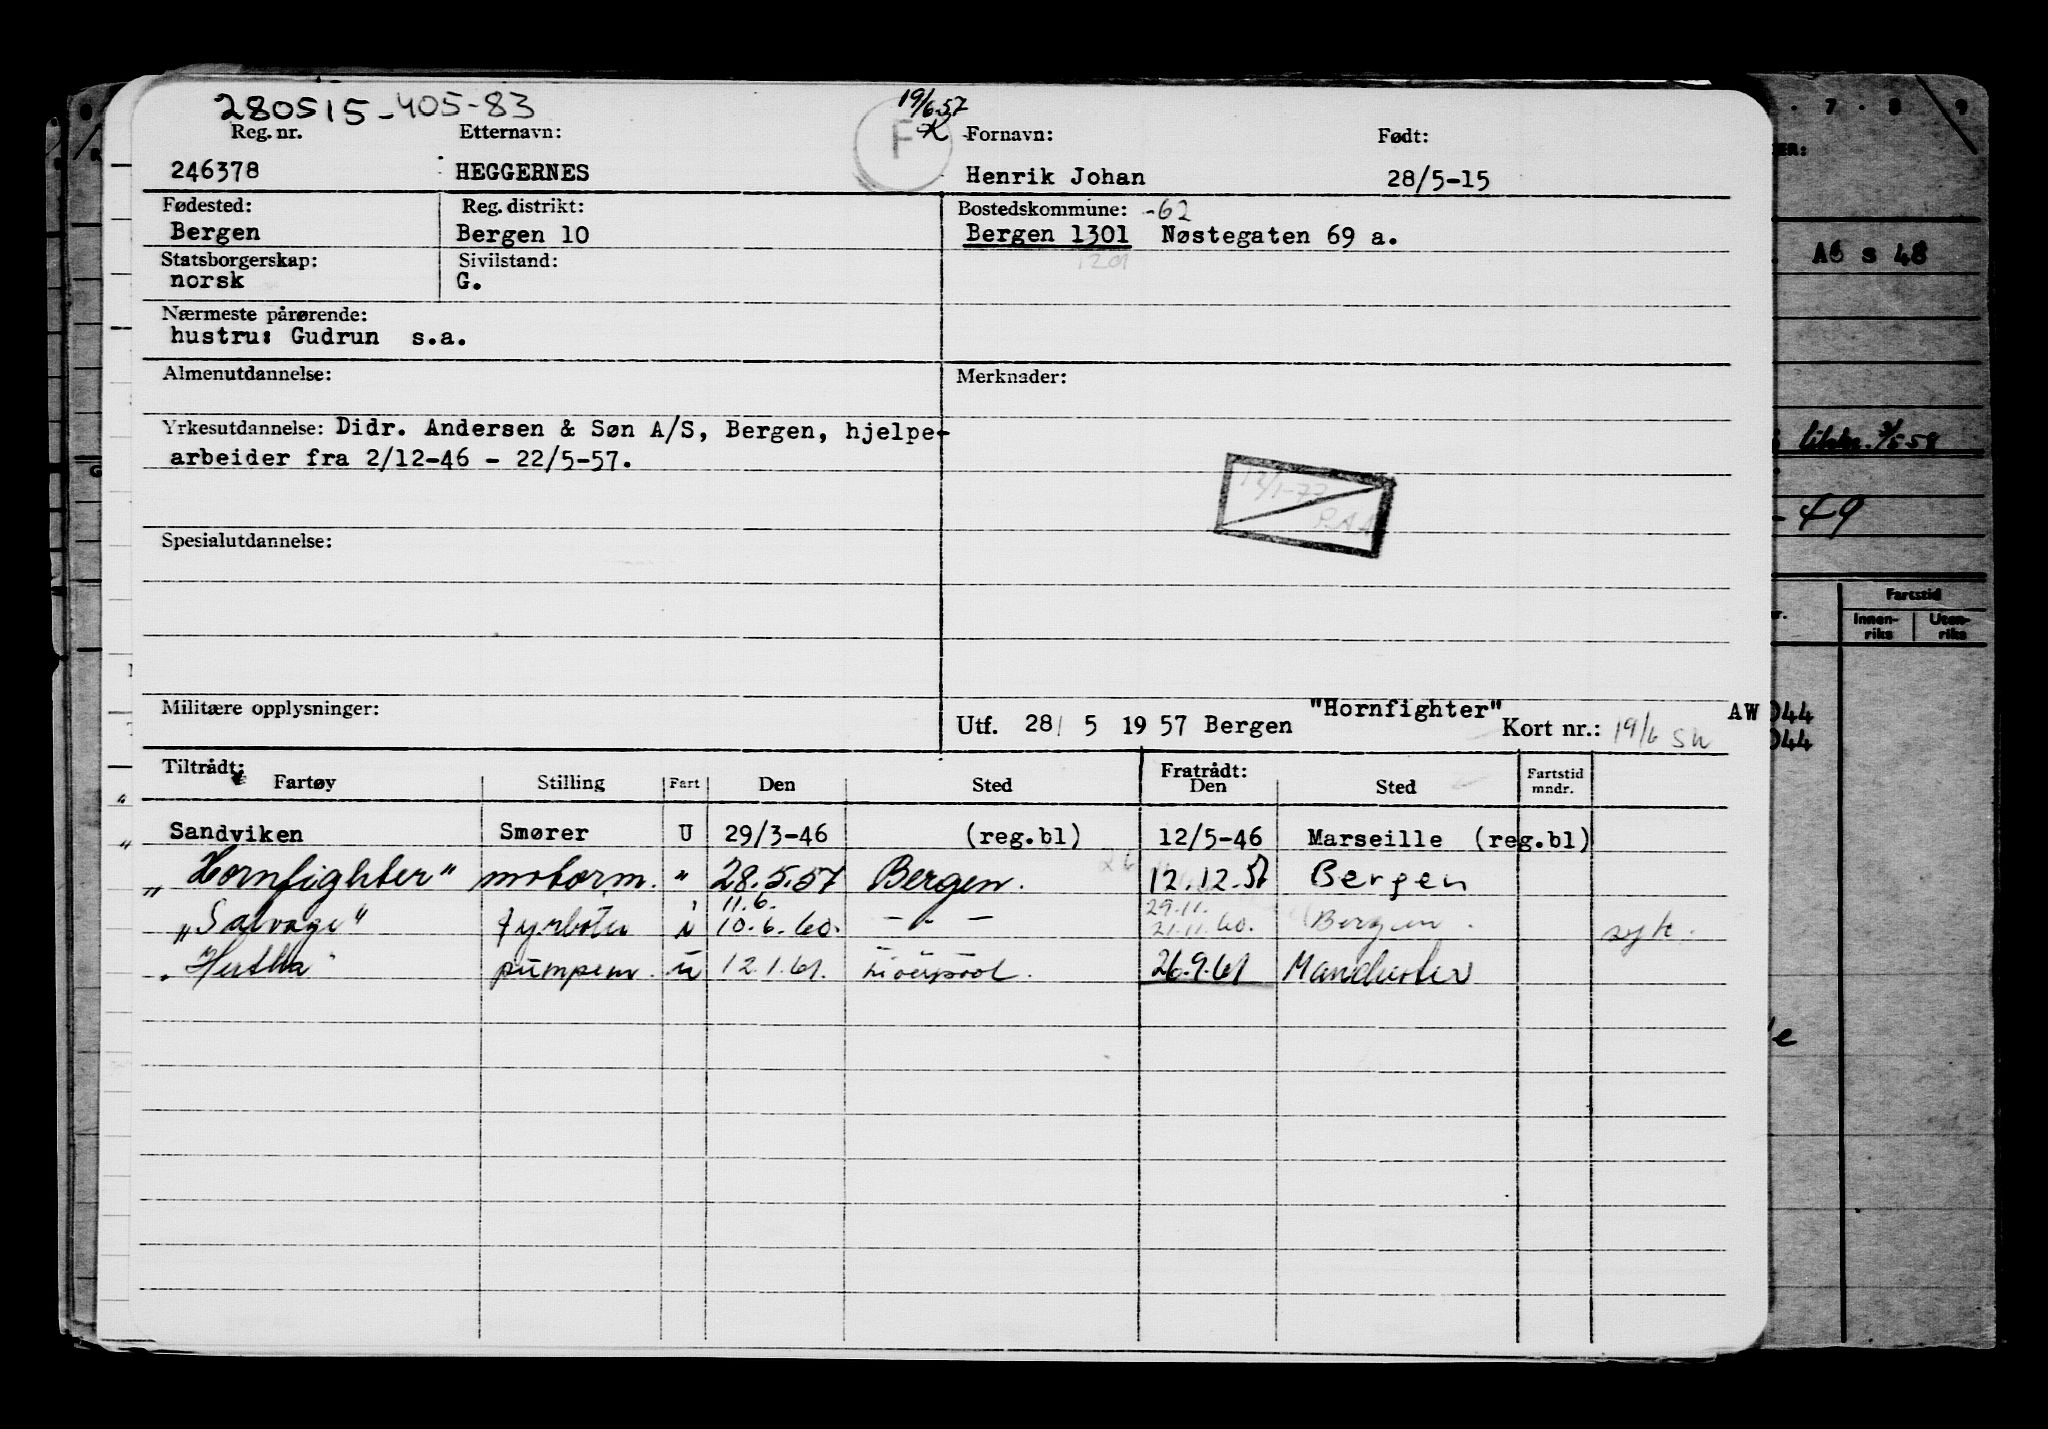 280515-405-83
19/6-57
Reg. nr. Etternavn: F Fornavn: Født:
246378 HEGGERNES Henrik Johan 28/5-15
Fødested: Reg. distrikt: Bostedskommune: -62
Bergen Bergen 10 Bergen 1301 Nøstegaten 69 a.
Statsborgerskap: Sivilstand: 1201
norsk G.
Nærmeste pårørende:
hustru: Gudrun s.a.
Almenutdannelse: Merknader:
Yrkesutdannelse: Didr. Andersen & Søn A/S, Bergen, hjelpe-
arbeider fra 2/12-46 - 22/5-57.
Spesialutdannelse:
Militære opplysninger: Utf. 28/ 5 1957 Bergen "Hornfighter" Kort nr.: 19/6 AW
Tiltrådt: Fratrådt:
Fartøy Stilling Fart Den Sted Den Sted Fartstid mndr.
Sandviken Smører U 29/3-46 (reg.bl) 12/5-46 Marseille (reg.bl)
"Hornfighter" motorm. " 28.5.57 Bergen. 12.12.57 Bergen
11.6. 29.11.
"Salvage" fyrbøter i 10.6.60. - " - 21.11.60. Bergen. syk.
"Hertha" pumpem. u 12.1.61. Liverpool. 26.9.61 Manchester
7 8 9
A6 s 48
-49
Fartstid
Innen-riks Uten-riks
044
044